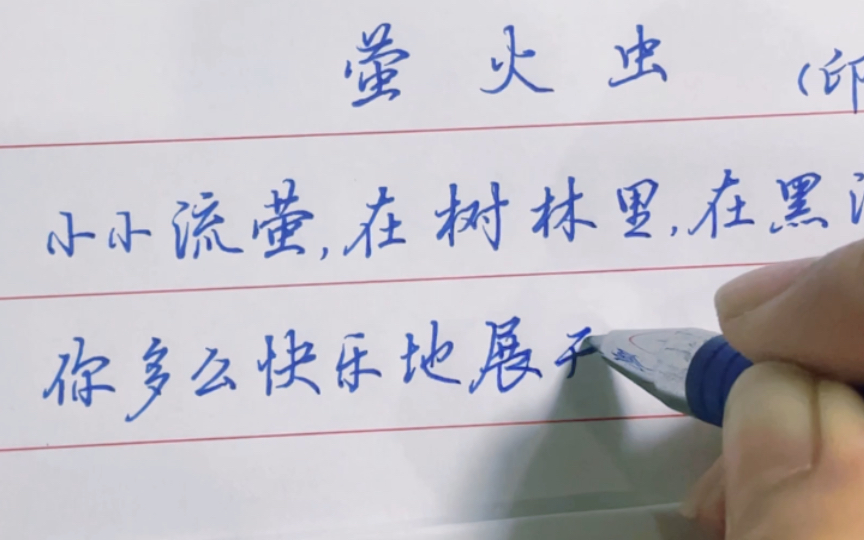 萤火虫 (印
小小流萤,在树林里,在黑
你多么快乐地展